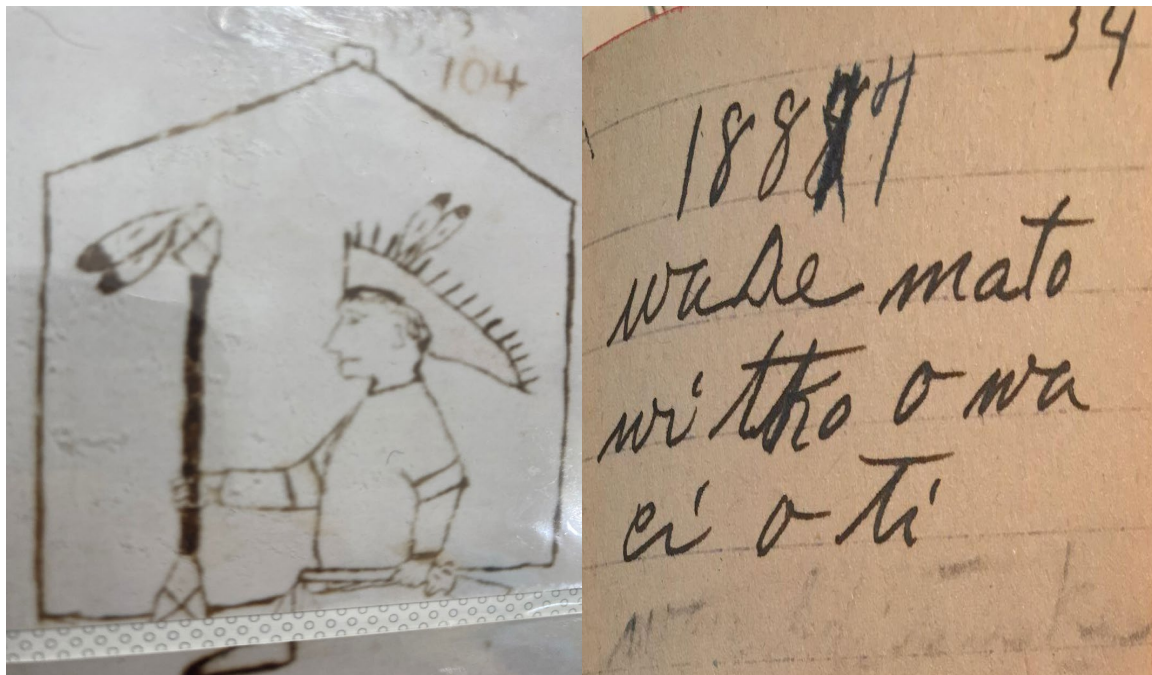 104
34
18884
wade mato
witko o wa
ci o ti